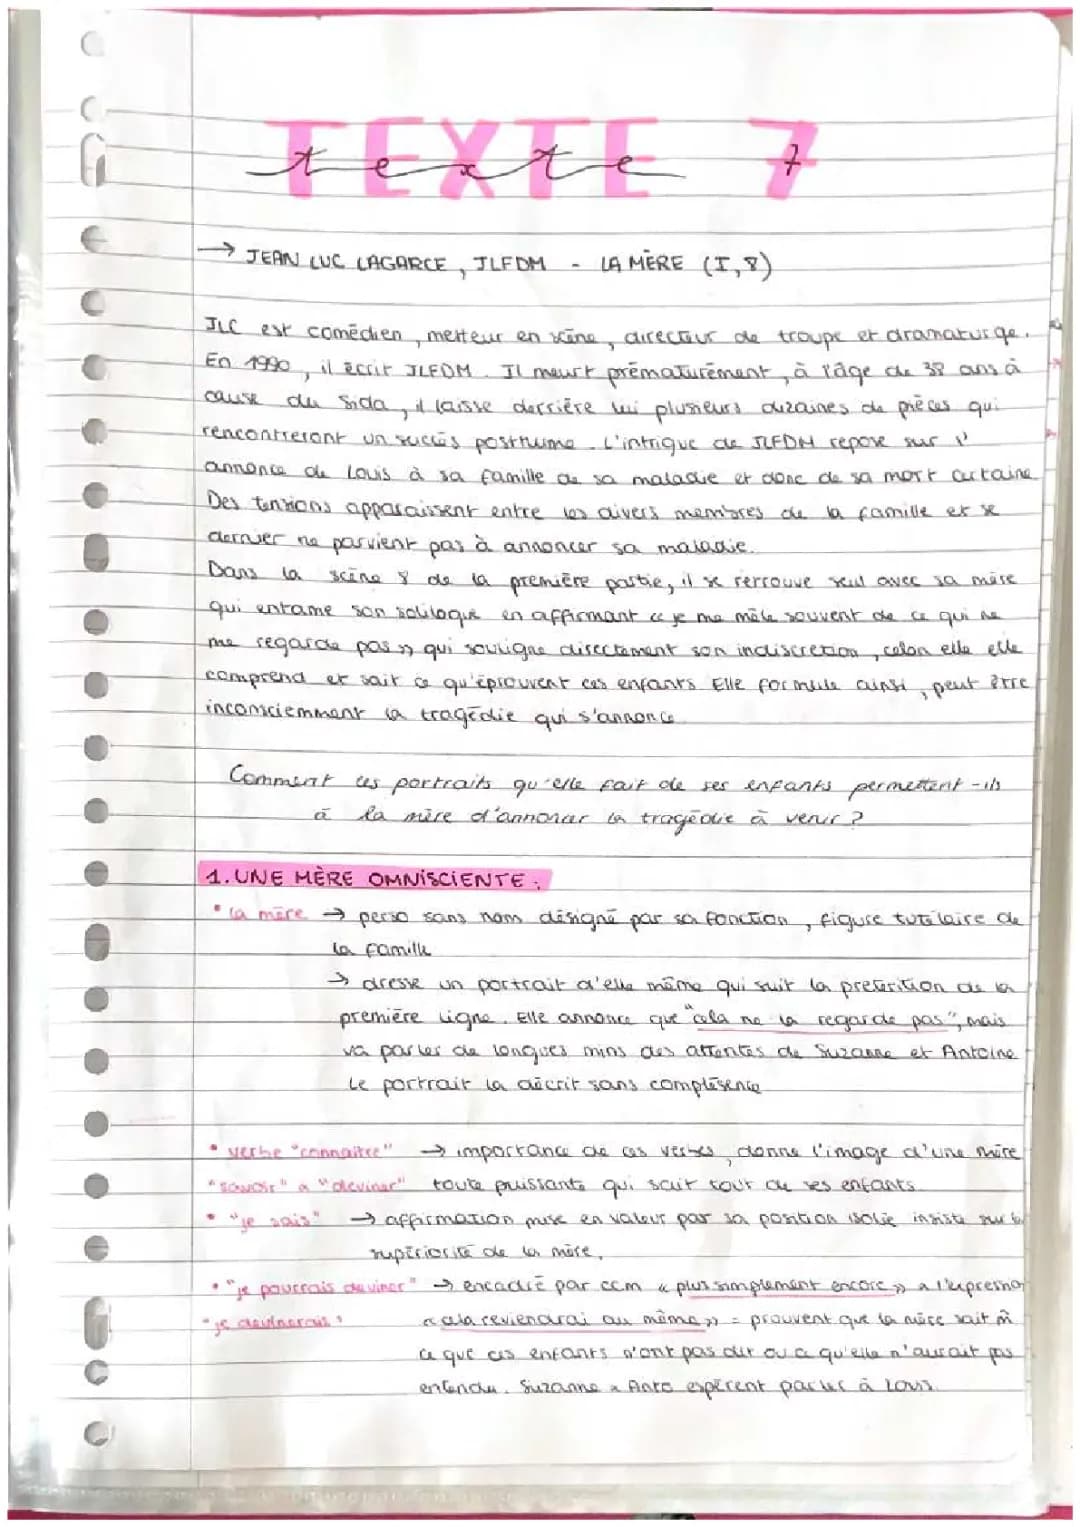 TEXTE 7
texte
→ JEAN LUC LAGARCE, JLFDM - LA MÈRE (I,8)
JLC est comédien, metteur en scène, directeur de troupe et dramaturge.
En 1990, il écrit JLFDM. Il meurt prématurément, à l'âge de 38 ans à
cause du Sida, il laisse derrière lui plusieurs duzaines de pièces qui
rencontreront un succès posthume. L'intrigue de JLFDM repose sur l'
annonce de Louis à sa famille de sa maladie et donc de sa mort certaine
Des tensions apparaissent entre les divers membres de la famille et se
dernier ne parvient pas à annoncer sa maladie.
Dans la scène 8 de la première partie, il se retrouve seul avec sa mère
qui entame son soliloque en affirmant « je me mêle souvent de ce qui ne
me regarde pas » qui souligne directement son indiscretion, celon elle elle
comprend et sait ce qu'éprouvent ces enfants Elle formule ainsi, peut être
inconsciemment la tragédie qui s'annonce
Comment ces portraits qu'elle fait de ses enfants permettent-ils
à la mère d'annoncer la tragédie à venir ?
1. UNE MÈRE OMNISCIENTE :
• la mère → perso sans nom désigné par sa fonction, figure tutélaire de
la famille
→ dresse un portrait d'elle même qui suit la preterition de la
première ligne. Elle annonce que "cela ne la regarde pas", mais
va parler de longues mins des attentes de Suzanne et Antoine
Le portrait la décrit sans complésence
• verbe "connaitre" → importance de ces verbes, donne l'image d'une mère
"savoir" a "deviner" toute puissante qui sait tout de ses enfants
• "je sais" → affirmation mise en valeur par sa position isolée insiste sur la
supériorité de la mère.
• "je pourrais deviner" → encadré par ccm « plus simplement encore » a l'
"je devinerais" « cela reviendrai au même » = prouvent que la mère sait m̂
ce que ces enfants n'ont pas dit ou ce qu'elle n'aurait pas
entendu. Suzanne a Anto espèrent parler à Louis.